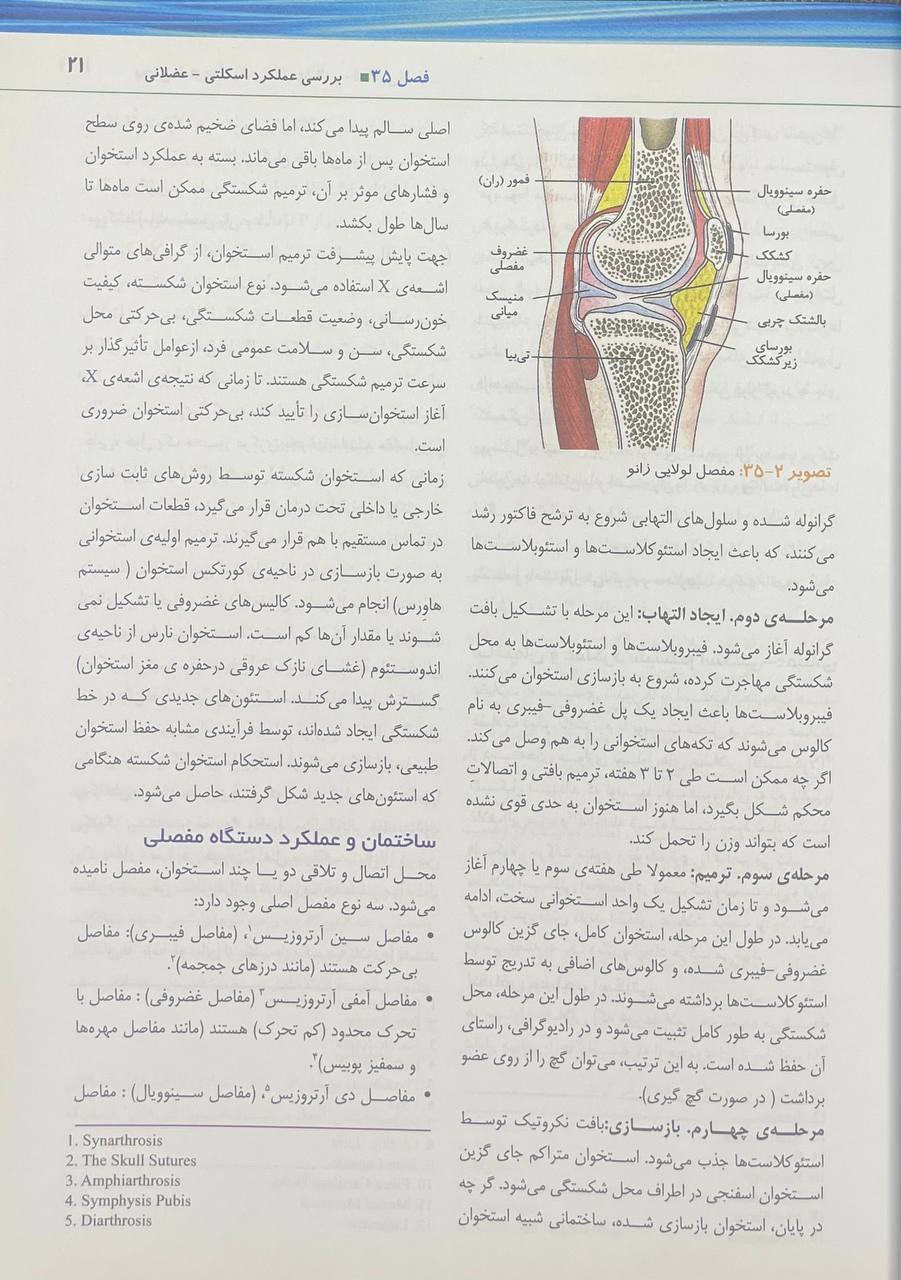 فصل ۳۵ ■ بررسی عملکرد اسکلتی - عضلانی
۲۱
فمور (ران)
غضروف
مفصلی
منیسک
میانی
تی‌بیا
حفره سینوویال
(مفصلی)
بورسا
کشکک
حفره سینوویال
(مفصلی)
بالشتک چربی
بورسای
زیرکشکک
تصویر ۲-۳۵: مفصل لولایی زانو
گرانوله شده و سلول‌های التهابی شروع به ترشح فاکتور رشد
می‌کنند، که باعث ایجاد استئوکلاست‌ها و استئوبلاست‌ها
می‌شود.
مرحله‌ی دوم. ایجاد التهاب: این مرحله با تشکیل بافت
گرانوله آغاز می‌شود. فیبروبلاست‌ها و استئوبلاست‌ها به محل
شکستگی مهاجرت کرده، شروع به بازسازی استخوان می‌کنند.
فیبروبلاست‌ها باعث ایجاد یک پل غضروفی-فیبری به نام
کالوس می‌شوند که تکه‌های استخوانی را به هم وصل می‌کند.
اگر چه ممکن است طی ۲ تا ۳ هفته، ترمیم بافتی و اتصالاتِ
محکم شکل بگیرد، اما هنوز استخوان به حدی قوی نشده
است که بتواند وزن را تحمل کند.
مرحله‌ی سوم. ترمیم: معمولا طی هفته‌ی سوم یا چهارم آغاز
می‌شود و تا زمان تشکیل یک واحد استخوانی سخت، ادامه
می‌یابد. در طول این مرحله، استخوان کامل، جای گزین کالوس
غضروفی-فیبری شده، و کالوس‌های اضافی به تدریج توسط
استئوکلاست‌ها برداشته می‌شوند. در طول این مرحله، محل
شکستگی به طور کامل تثبیت می‌شود و در رادیوگرافی، راستای
آن حفظ شده است. به این ترتیب، می‌توان گچ را از روی عضو
برداشت ( در صورت گچ گیری).
مرحله‌ی چهارم. بازسازی:بافت نکروتیک توسط
استئوکلاست‌ها جذب می‌شود. استخوان متراکم جای گزین
استخوان اسفنجی در اطراف محل شکستگی می‌شود. گر چه
در پایان، استخوان بازسازی شده، ساختمانی شبیه استخوان
اصلی سالم پیدا می‌کند، اما فضای ضخیم شده‌ی روی سطح
استخوان پس از ماه‌ها باقی می‌ماند. بسته به عملکرد استخوان
و فشارهای موثر بر آن، ترمیم شکستگی ممکن است ماه‌ها تا
سال‌ها طول بکشد.
جهت پایش پیشرفت ترمیم استخوان، از گرافی‌های متوالی
اشعه‌ی X استفاده می‌شود. نوع استخوان شکسته، کیفیت
خون‌رسانی، وضعیت قطعات شکستگی، بی‌حرکتی محل
شکستگی، سن و سلامت عمومی فرد، ازعوامل تأثیرگذار بر
سرعت ترمیم شکستگی هستند. تا زمانی که نتیجه‌ی اشعه‌ی X،
آغاز استخوان‌سازی را تأیید کند، بی‌حرکتی استخوان ضروری
است.
زمانی که استخوان شکسته توسط روش‌های ثابت سازی
خارجی یا داخلی تحت درمان قرار می‌گیرد، قطعات استخوان
در تماس مستقیم با هم قرار می‌گیرند. ترمیم اولیه‌ی استخوانی
به صورت بازسازی در ناحیه‌ی کورتکس استخوان ( سیستم
هاوِرس) انجام می‌شود. کالیس‌های غضروفی یا تشکیل نمی
شوند یا مقدار آن‌ها کم است. استخوان نارس از ناحیه‌ی
اندوستئوم (غشای نازک عروقی درحفره ی مغز استخوان)
گسترش پیدا می‌کند. استئون‌های جدیدی که در خط
شکستگی ایجاد شده‌اند، توسط فرآیندی مشابه حفظ استخوان
طبیعی، بازسازی می‌شوند. استحکام استخوان شکسته هنگامی
که استئون‌های جدید شکل گرفتند، حاصل می‌شود.
ساختمان و عملکرد دستگاه مفصلی
محل اتصال و تلاقی دو یا چند استخوان، مفصل نامیده
می‌شود. سه نوع مفصل اصلی وجود دارد:
• مفاصل سین آرتروزیس۱، (مفاصل فیبری): مفاصل
بی‌حرکت هستند (مانند درزهای جمجمه)۲.
• مفاصل آمفی آرتروزیس۳ (مفاصل غضروفی) : مفاصل با
تحرک محدود (کم تحرک) هستند (مانند مفاصل مهره‌ها
و سمفیز پوبیس)۴.
• مفاصل دی آرتروزیس۵، (مفاصل سینوویال) : مفاصل
1. Synarthrosis
2. The Skull Sutures
3. Amphiarthrosis
4. Symphysis Pubis
5. Diarthrosis